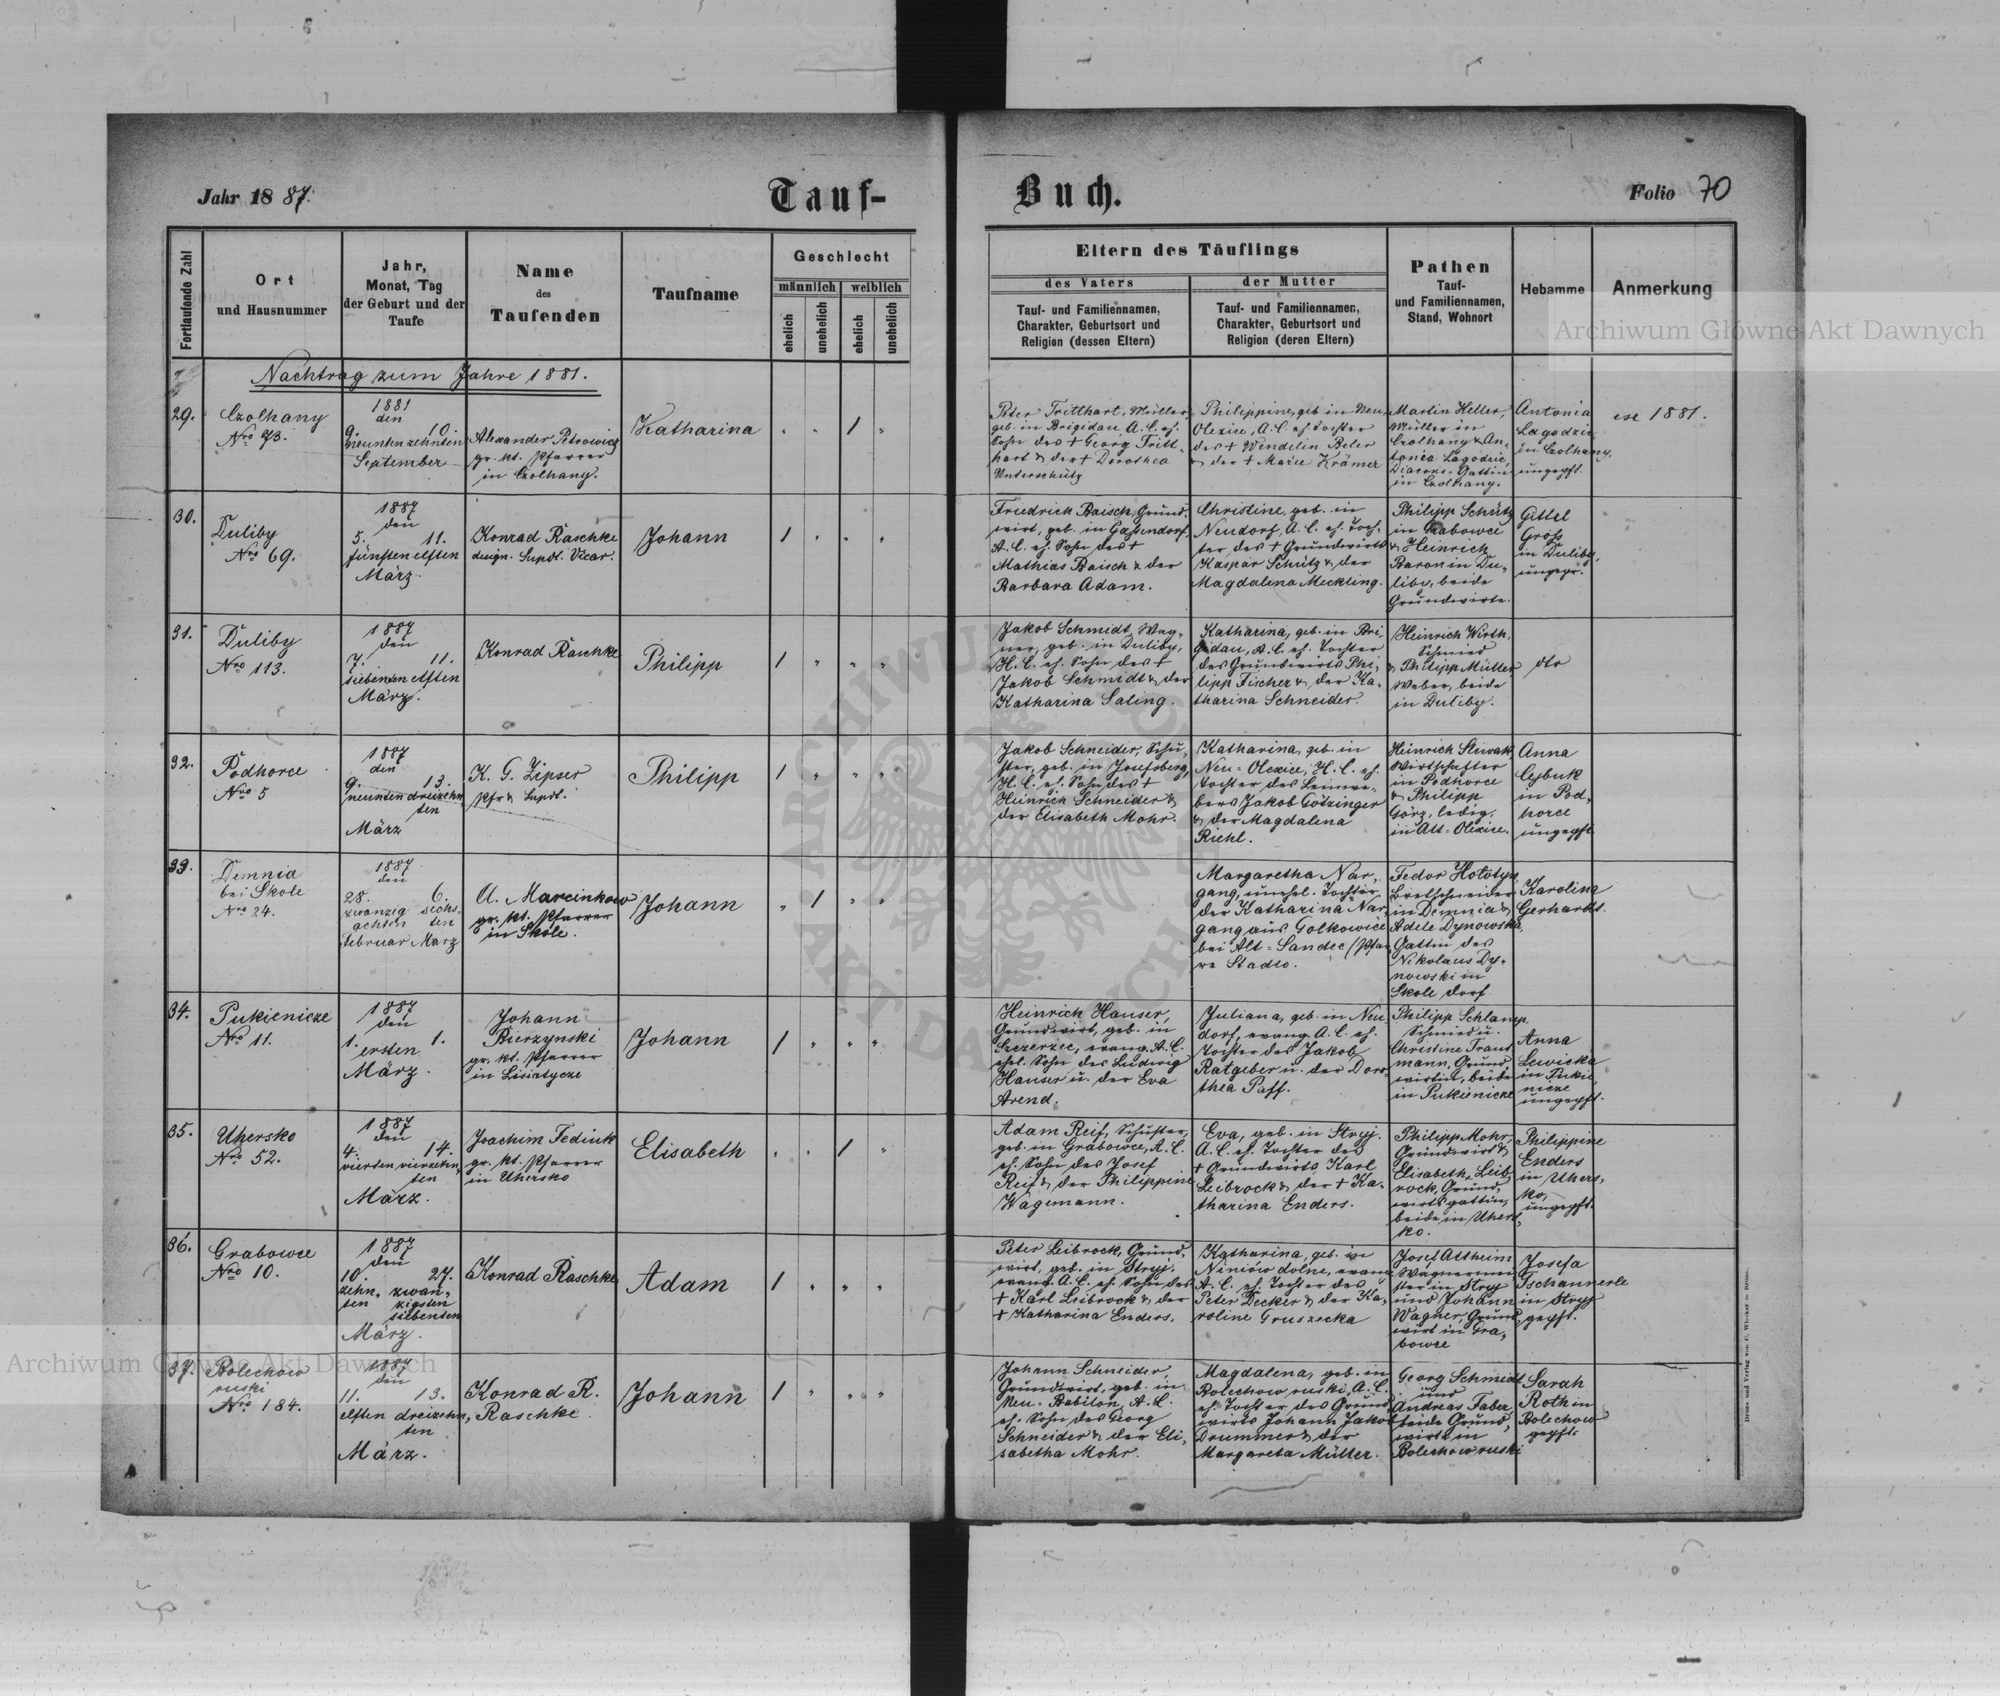 Jahr 1887.
Tauf-
Buch.
Folio 70
Fortlaufende Zahl
Ort
und Hausnummer
Jahr,
Monat, Tag
der Geburt und der
Taufe
Name
des
Taufenden
Taufname
Geschlecht
männlich
weiblich
ehelich
unehelich
ehelich
unehelich
Eltern des Täuflings
des Vaters
Tauf- und Familiennamen,
Charakter, Geburtsort und
Religion (dessen Eltern)
der Mutter
Tauf- und Familiennamen,
Charakter, Geburtsort und
Religion (deren Eltern)
Pathen
Tauf-
und Familiennamen,
Stand, Wohnort
Hebamme
Anmerkung
Nachtrag zum Jahre 1881.
29.
Czolhany
Nro 73.
1881
den
9. 10.
neunten zehnten
September
Alexander Petrowicz
gr. kt. Pfarrer
in Czolhany.
Katharina
Peter Tritthart, Müller,
geb. in Brigidau A. C. eh.
Sohn des † Georg Tritt-
hart & der † Dorothea
Unterschütz
Philippine, geb in Neu
Olexice, A. C. eh. Tochter
des † Wendelin Beler
& der † Marie Krämer
Martin Heller,
Müller in
Czolhany & An-
tonia Lagodzic,
Diacons-Gattin
in Czolhany.
Antonia
Lagodzic
in Czolhany,
ungepft.
1881.
30.
Duliby
Nro 69.
1887
den
5. 11.
fünften elften
März.
Konrad Raschke
design. Supdt. Vicar.
Johann
Friedrich Baisch, Grund-
wirt, geb. in Gassendorf,
A. C. eh. Sohn des †
Mathias Baisch & der
Barbara Adam.
Christine, geb. in
Neudorf, A. C. eh. Toch-
ter des † Grundwirts
Kaspar Schütz & der
Magdalena Meckling.
Philipp Schütz
in Grabowce
& Heinrich
Baron in Du-
liby, beide
Grundwirte.
Gittel
Groß
in Duliby,
ungepr.
31.
Duliby
Nro 113.
1887
den
7. 11.
siebenten elften
März.
Konrad Raschke
Philipp
Jakob Schmidt, Wag-
ner, geb. in Duliby,
H. C. eh. Sohn des †
Jakob Schmidt & der
Katharina Saling.
Katharina, geb. in Bri-
gidau, A. C. eh. Tochter
des Grundwirts Phi-
lipp Fischer & der Ka-
tharina Schneider.
Heinrich Wirth,
Schmied
& Philipp Müller,
Weber, beide
in Duliby.
dto
32.
Podhorce
Nro 5
1887
den
9. 13.
neunten dreizehn-
ten
März
K. G. Zipser
Pfr & Supdt.
Philipp
Jakob Schneider, Schu-
ster, geb. in Josefsberg,
H. C. eh. Sohn des †
Heinrich Schneider &
der Elisabeth Mohr.
Katharina, geb. in
Neu-Olexice, H. C. eh.
Tochter des Leinwe-
bers Jakob Götzinger
& der Magdalena
Riehl.
Heinrich Slivak
Wirtschafter
in Podhorce
& Philipp
Görz, ledig,
in Alt-Olexice.
Anna
Cybuk
in Pod-
horce
ungepft.
33.
Demnia
bei Skole
Nro 24.
1887
den
28. 6.
zwanzig sechs-
achten ten
Februar März
A. Marcinkow
gr. kt. Pfarrer
in Skole.
Johann
Margaretha Nar-
gang, unehel. Tochter
der Katharina Nar-
gang aus Golkowice
bei Alt-Sandec (Pfar-
re Stadlo.
Fedor Hototys
Bretschneider
in Demnia &
Adele Dynowska,
Gattin des
Nikolaus Dy-
nowski in
Skole dorf
Karolina
Gerhardt.
34.
Pukienicze
Nro 11.
1887
den
1. 1.
ersten
März.
Johann
Bierzynski
gr. kt. Pfarrer
in Lisiatycze
Johann
Heinrich Hauser,
Grundwirt, geb. in
Szczerzec, evang. A. C.
ehel. Sohn des Ludwig
Hauser u. der Eva
Arend.
Juliana, geb. in Neu
dorf, evang. A. C. eh.
Tochter des Jakob
Ratgeber u. der Doro-
thea Paff.
Philipp Schlamp,
Schmied u.
Christine Traut
mann, Grund
wirtin, beide
in Pukienicze
Anna
Lewicka
in Pukie
nicze
ungepft.
35.
Uhersko
Nro 52.
1887
den
4. 14.
vierten vierzehn-
ten
März.
Joachim Fediuk
gr. kt. Pfarrer
in Uhersko
Elisabeth
Adam Reif, Schuster,
geb. in Grabowce, A. C.
eh. Sohn des Josef
Reif & der Philippine
Wagemann.
Eva, geb. in Stryj.
A. C. eh. Tochter des
† Grundwirts Karl
Leibrock & der † Ka-
tharina Enders.
Philipp Mohr,
Grundwirt &
Elisabeth Leib-
rock, Grund-
wirtsgattin,
beide in Uhers-
ko.
Philippine
Enders
in Uhers-
ko,
ungepft.
36.
Grabowce
Nro 10.
1887
den
10. 27.
zehn- zwan-
ten zigsten
siebenten
März.
Konrad Raschke
Adam
Peter Leibrock, Grund-
wirt, geb. in Stryj.
evang. A. C. eh. Sohn des
† Karl Leibrock & der
† Katharina Enders.
Katharina, geb. in
Niniów dolne, evang
A. C. eh. Tochter des
Peter Decker & der Ka-
roline Gruszecka
Josef Altheim
Wagnermei
ster in Stryj
und Johann
Wagner, Grund-
wirt in Gra-
bowce
Josefa
Tschannerle
in Stryj
gepft.
37.
Bolechow
ruski
Nro 184.
1887
den
11. 13.
elften dreizehn-
ten
März.
Konrad R.
Raschke
Johann
Johann Schneider,
Grundwirt, geb. in
Neu-Babilon, A. C.
eh. Sohn des Georg
Schneider & der Eli-
sabetha Mohr.
Magdalena, geb. in
Bolechow ruski, A. C.
eh. Tochter des Grund
wirts Johann Jakob
Drummer & der
Margareta Müller.
Georg Schmidt
und
Andreas Faber,
beide Grund-
wirte in
Bolechow ruski
Sarah
Roth in
Bolechow
gepft.
Druck und Verlag von C. Winiker — Brünn.
Archiwum Główne Akt Dawnych
Archiwum Główne Akt Dawnych
ARCHIWUM
AKT DAWNYCH